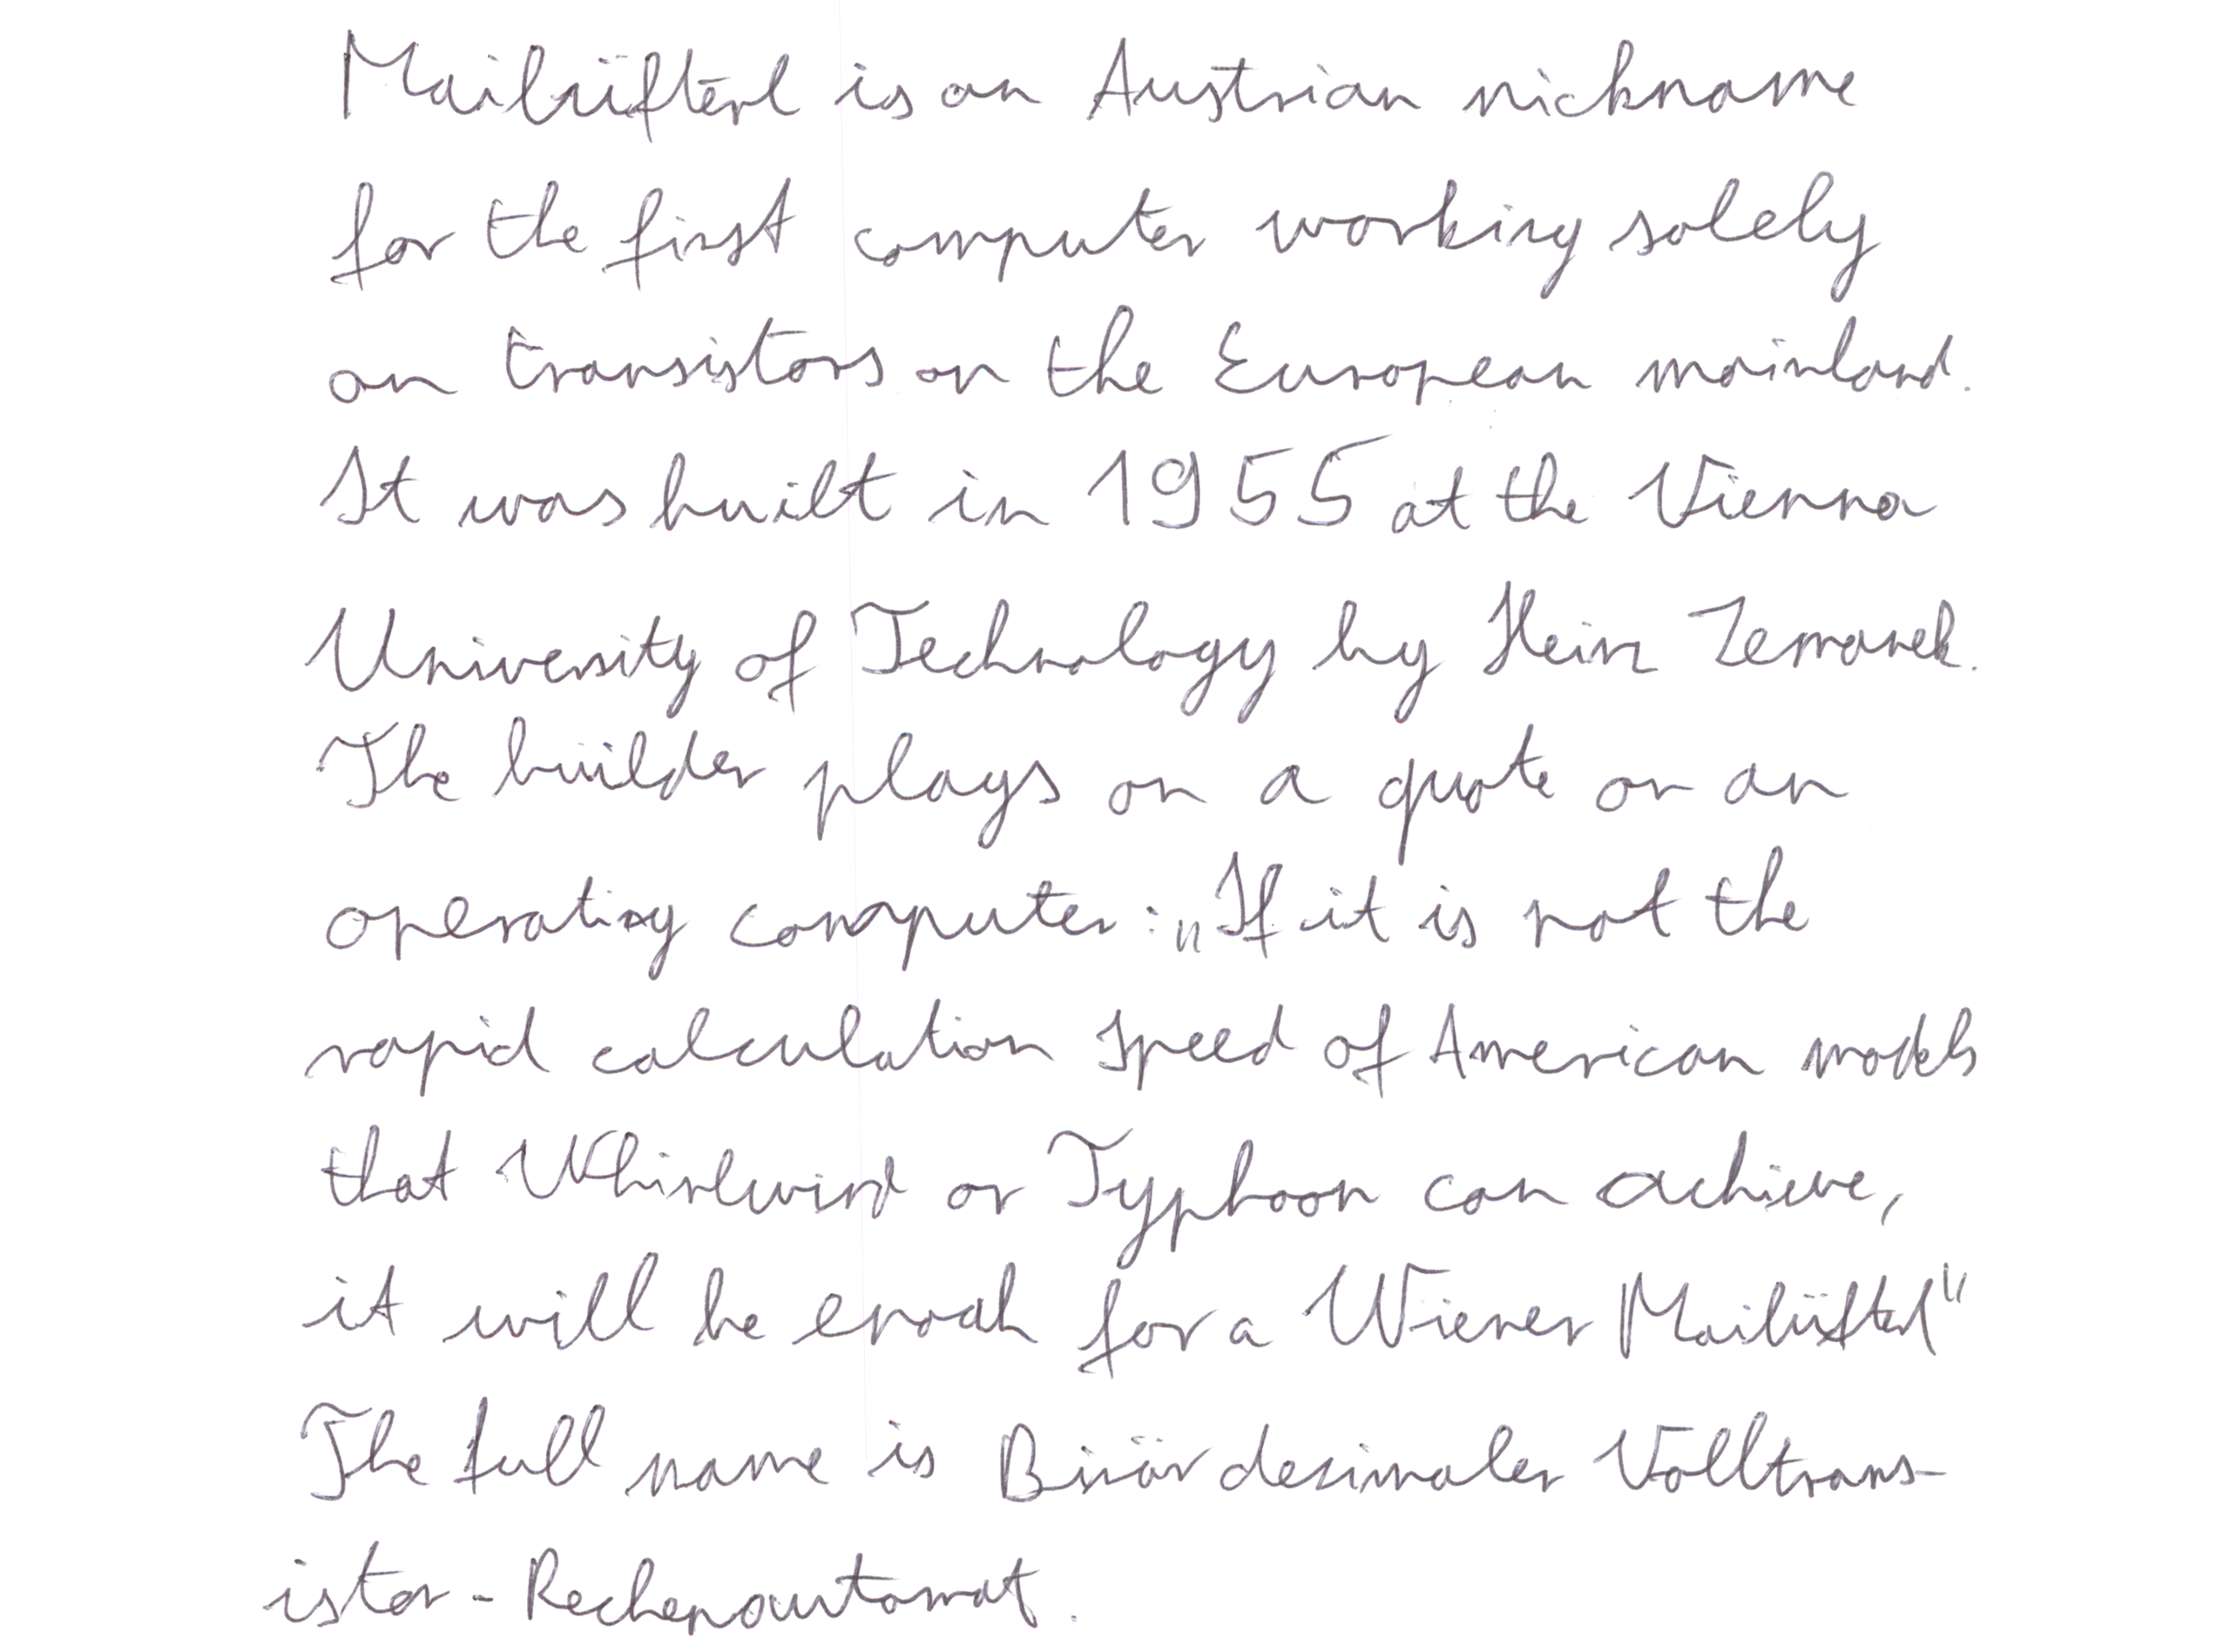 Mailüfterl is an Austrian nickname
for the first computer working solely
on transistors on the European mainland.
It was built in 1955 at the Vienna
University of Technology by Heinz Zemanek.
The builder plays on a quote on an
operating computer: „If it is not the
rapid calculation speed of American models
that Whirlwind or Typhoon can achieve,
it will be enough for a Wiener Mailüfterl"
The full name is Binär dezimaler Volltrans-
istor-Rechenautomat.